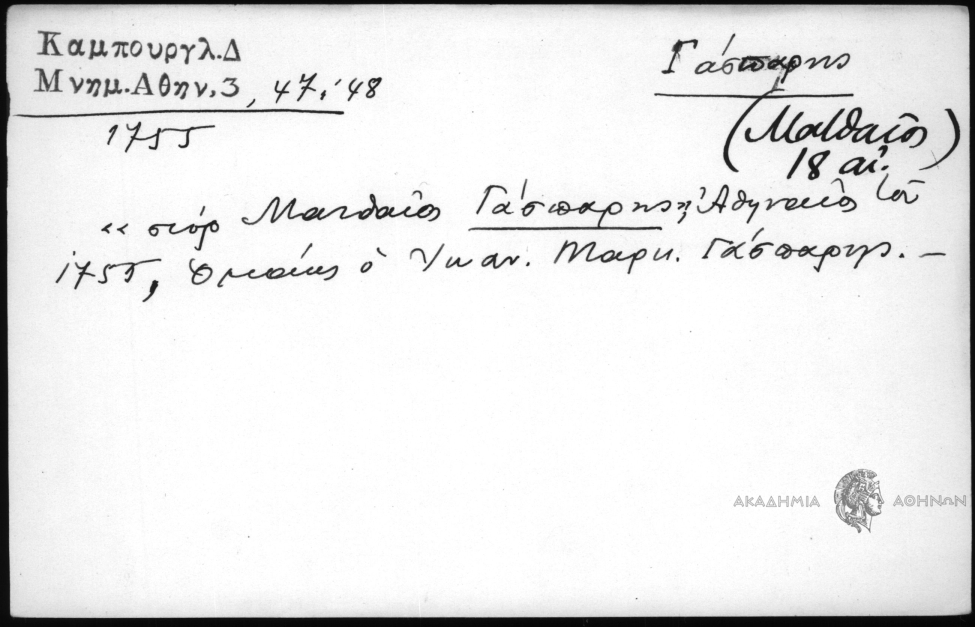 Καμπουργλ.Δ
Μνημ.Αθην.3, 47. 48
1755
Γάσπαρης
(Ματθαῖος)
18 αἰ.
«σιόρ Ματθαῖος Γάσπαρης», Ἀθηναῖος τοῦ
1755, ὁ Μαρκ. Γάσπαρης. –
ΑΚΑΔΗΜΙΑ ΑΘΗΝΩΝ